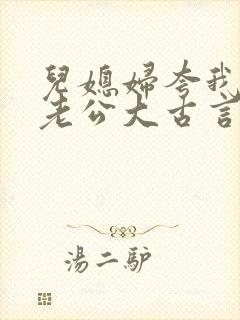 兒媳婦夸我
老公大古言
湯二馿